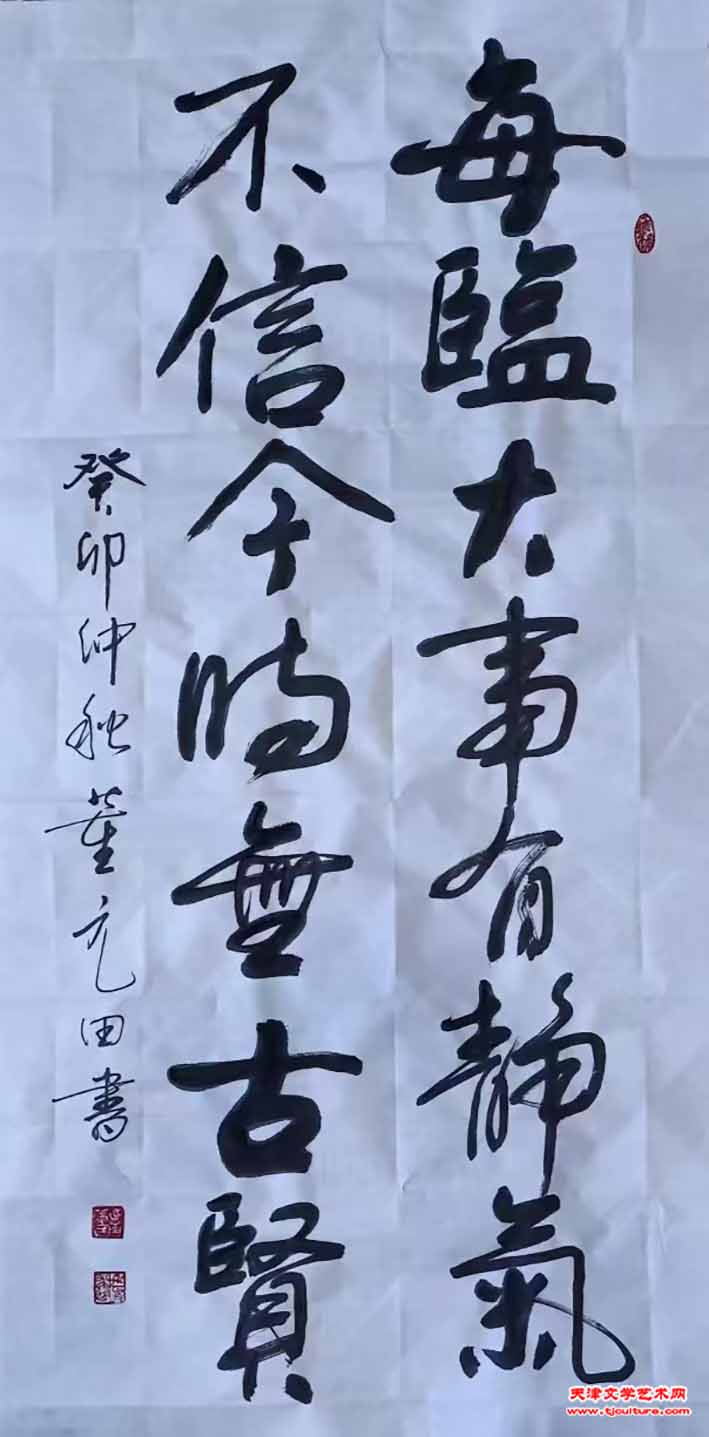 每臨大事有靜氣
不信今時無古賢
癸卯仲秋董元田書
天津文学艺术网
www.tjculture.com